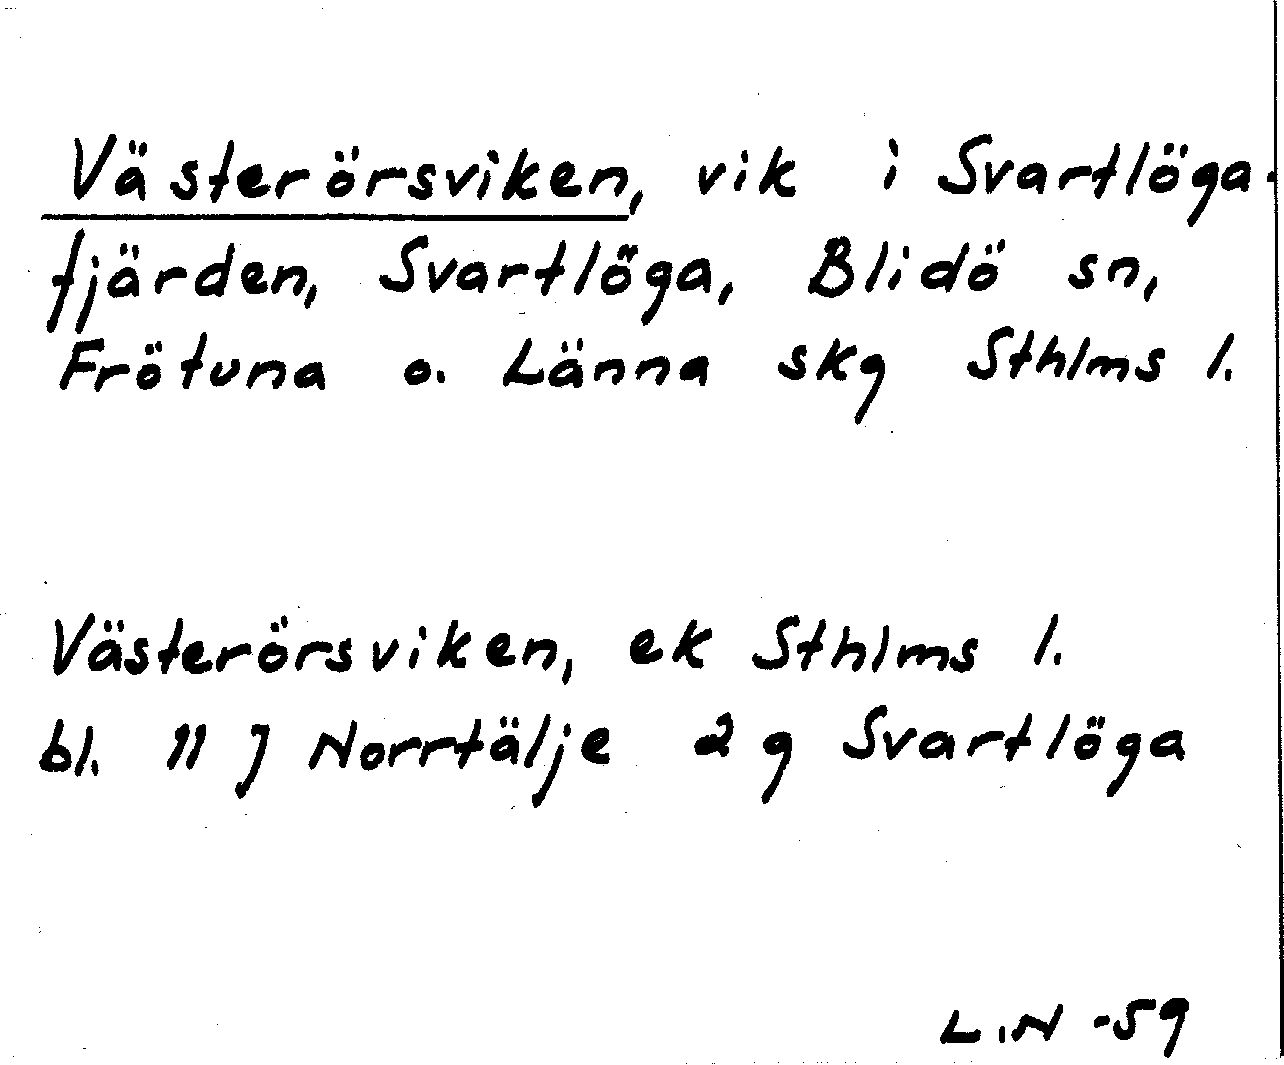 Västerörsviken, vik i Svartlöga-
fjärden, Svartlöga, Blidö sn,
Frötuna o. Länna skg Sthlms l.
Västerörsviken, ek Sthlms l.
bl. 11 J Norrtälje 2 g Svartlöga
L.N -59